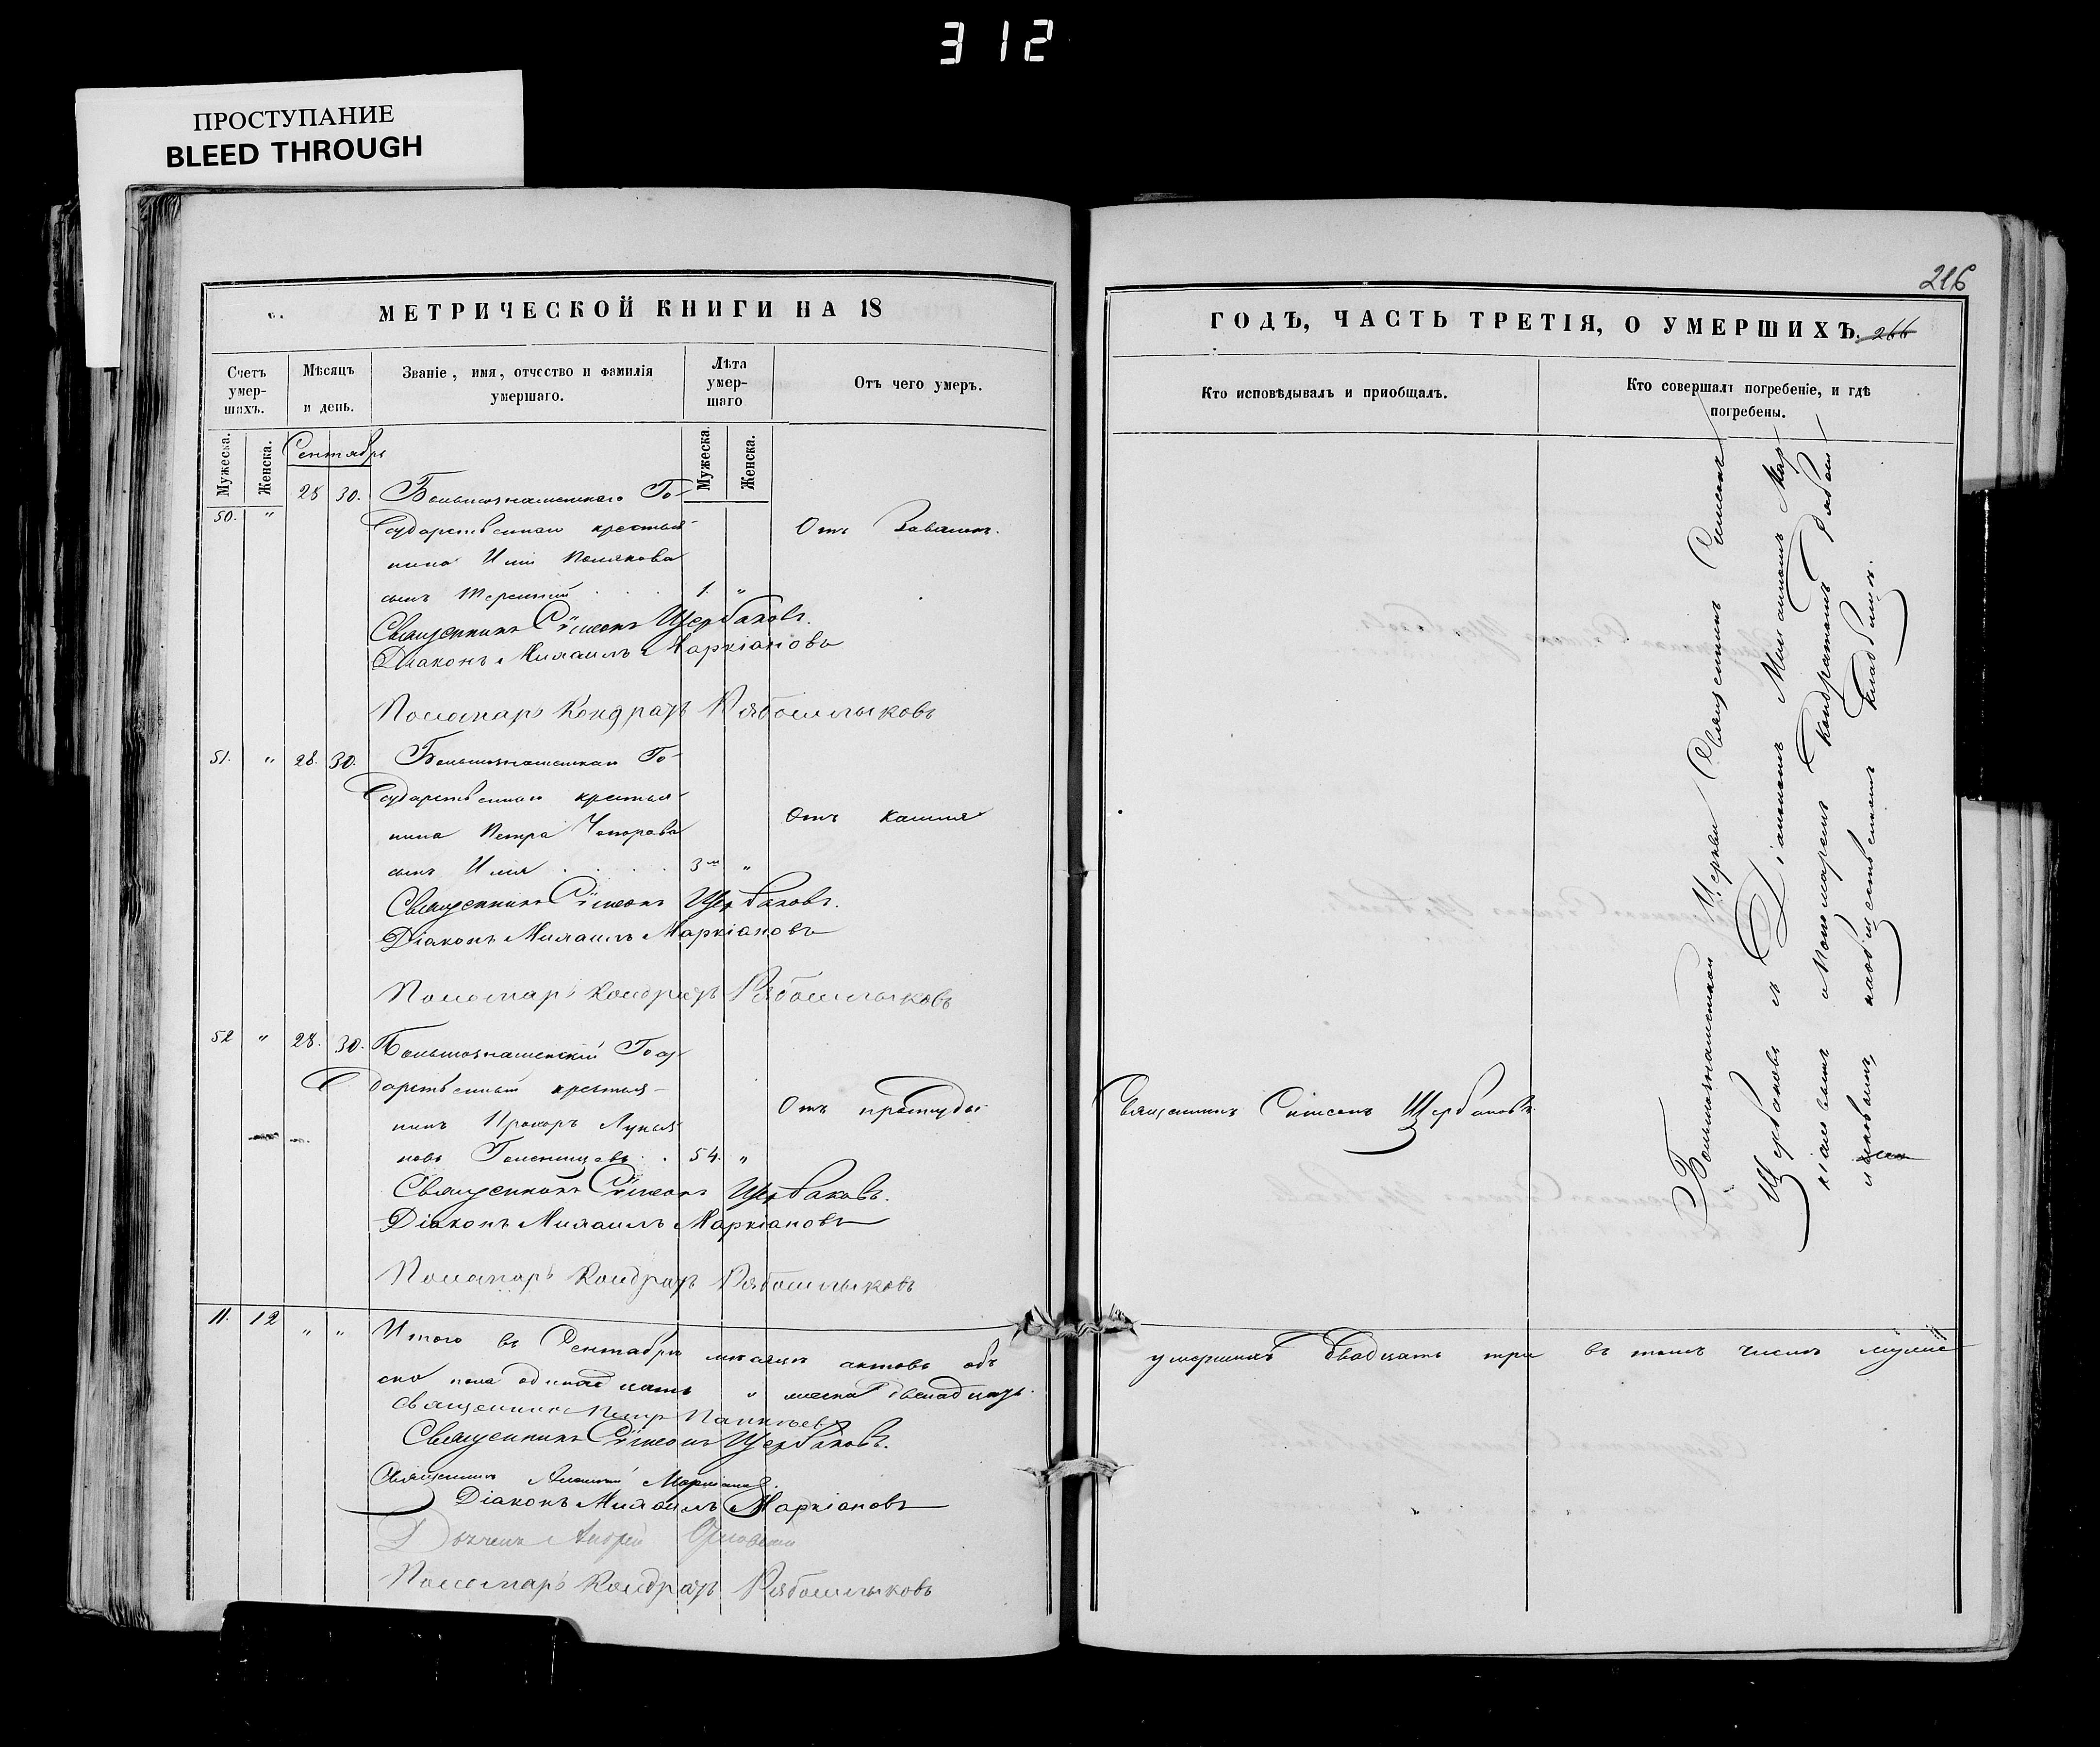 312
ПРОСТУПАНИЕ
BLEED THROUGH
МЕТРИЧЕСКОЙ КНИГИ НА 18
Счетъ умер-шихъ.
Мѣсяцъ и день.
Званіе, имя, отчество и фамилія умершаго.
Лѣта умер-шаго
Отъ чего умеръ.
Мужеска.
Женска.
Сентябрь
Мужеска
Женска.
28 30. Большознаменскаго Го-
50. "
сударственнаго крестья-
Отъ
нина Ильи Полякова
сынъ Терентій 1. "
Священникъ Сѵмеонъ Щербаковъ.
Діаконъ Михаилъ Маркіановъ
Пономарь Кондратъ Рябошлыковъ
51. " 28. 30. Большознаменскаго Го-
сударственнаго крестья-
нина Петра
Отъ кашля
сынъ Илья 3 м "
Священникъ Сѵмеонъ Щербаковъ.
Діаконъ Михаилъ Маркіановъ
Пономарь Кондратъ Рябошлыковъ
52 " 28. 30. Большознаменскій Госу-
дарственный крестья-
Отъ простуды
нинъ Прохоръ Лукья-
новъ 54. "
Священникъ Сѵмеонъ Щербаковъ.
Діаконъ Михаилъ Маркіановъ
Пономарь Кондратъ Рябошлыковъ
11. 12 " " Итого въ Сентябрѣ мѣсяцѣ актовъ объ
ско пола одинадцать " двенадцать.
Священникъ Петр
Священникъ Сѵмеонъ Щербаковъ.
Священникъ
Діаконъ Михаилъ Маркіановъ
Дьячекъ Андрей
Пономарь Кондратъ Рябошлыковъ
216
ГОДЪ, ЧАСТЬ ТРЕТІЯ, О УМЕРШИХЪ. 266
Кто исповѣдывалъ и пріобщалъ.
Кто совершалъ погребеніе, и гдѣ погребены.
Священникъ Симеонъ Щербаковъ.
Большознаменской Церкви Священникъ Симеонъ
Щербаковъ и Діакономъ Михаиломъ Мар-
кіановымъ и Пономаремъ Кондратомъ Рябош-
лыковымъ, на общественномъ кладбищѣ.
умершихъ двадцать три въ томъ числѣ муже